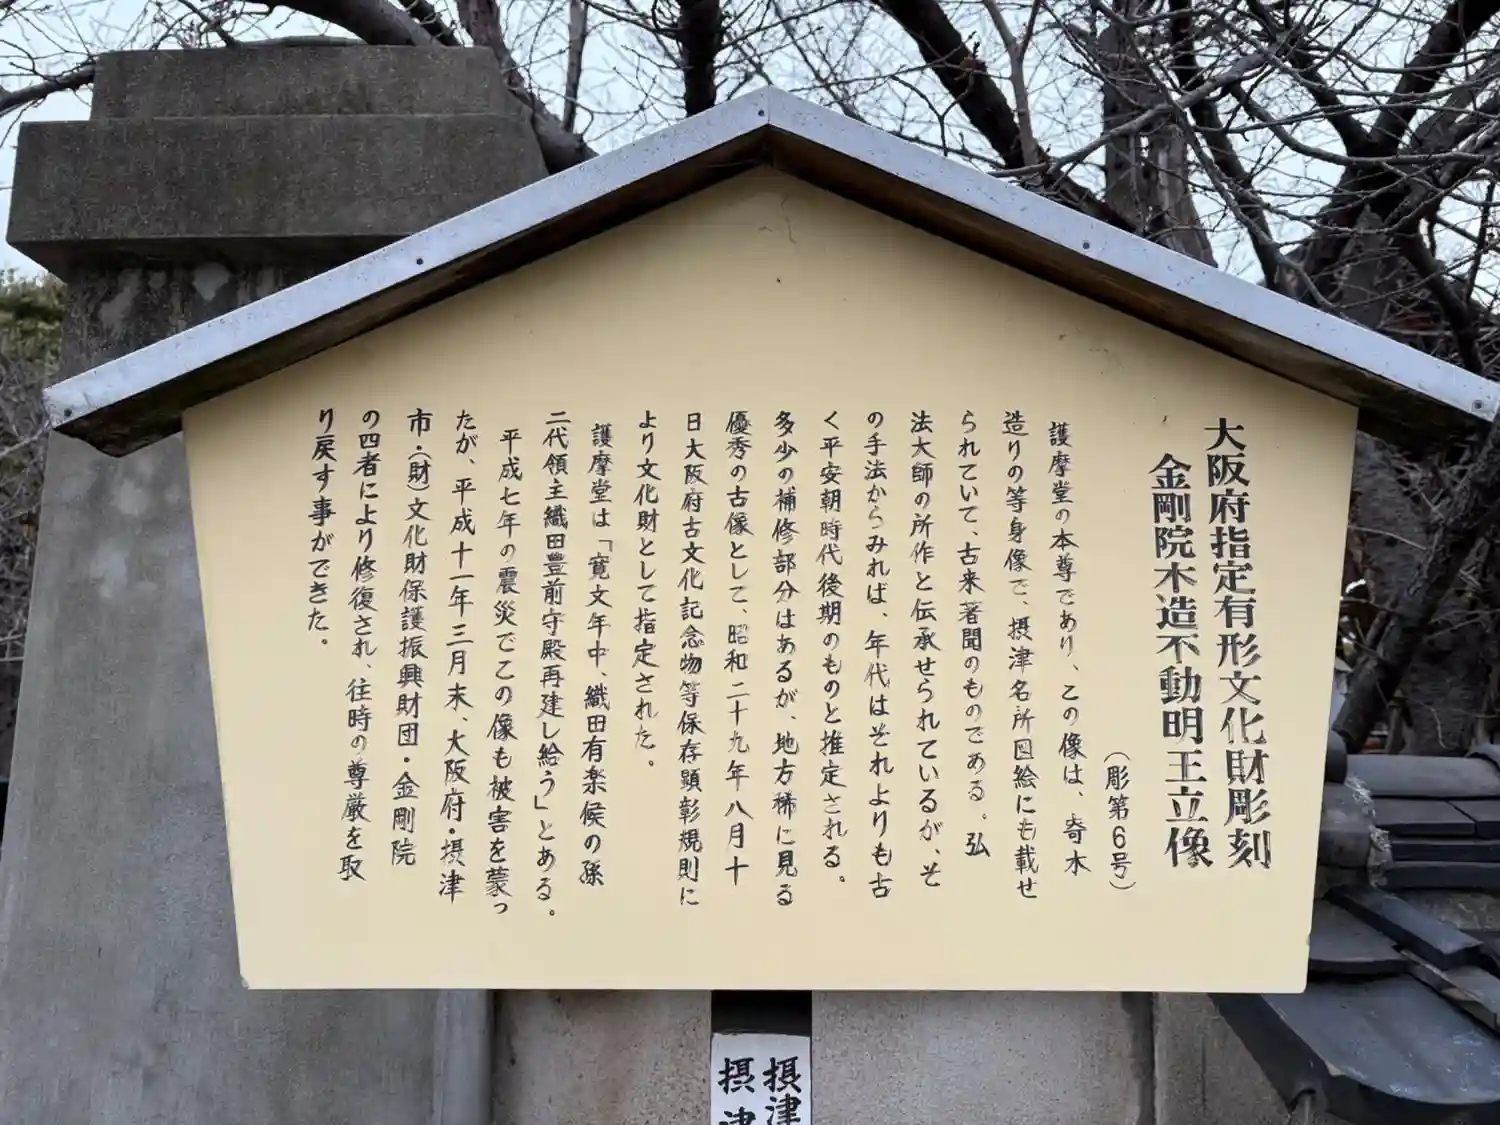 大阪府指定有形文化財彫刻
金剛院木造不動明王立像
（彫第6号）
護摩堂の本尊であり、この像は、寄木
造りの等身像で、摂津名所図絵にも載せ
られていて、古来著聞のものである。弘
法大師の所作と伝承せられているが、そ
の手法からみれば、年代はそれよりも古
く平安朝時代後期のものと推定される。
多少の補修部分はあるが、地方稀に見る
優秀の古像として、昭和二十九年八月十
日大阪府古文化記念物等保存顕彰規則に
より文化財として指定された。
護摩堂は「寛文年中、織田有楽候の孫
二代領主織田豊前守殿再建し給う」とある。
平成七年の震災でこの像も被害を蒙っ
たが、平成十一年三月末、大阪府・摂津
市・（財）文化財保護振興財団・金剛院
の四者により修復され、往時の尊厳を取
り戻す事ができた。
摂津
摂津